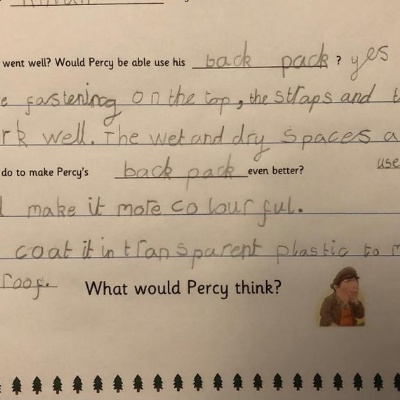 went well? Would Percy be able use his back pack ? yes
e fastening on the top, the straps and
rk well. The wet and dry spaces a
do to make Percy's back pack even better? use
make it more colourful.
coat it in transparent plastic to m
roof. What would Percy think?